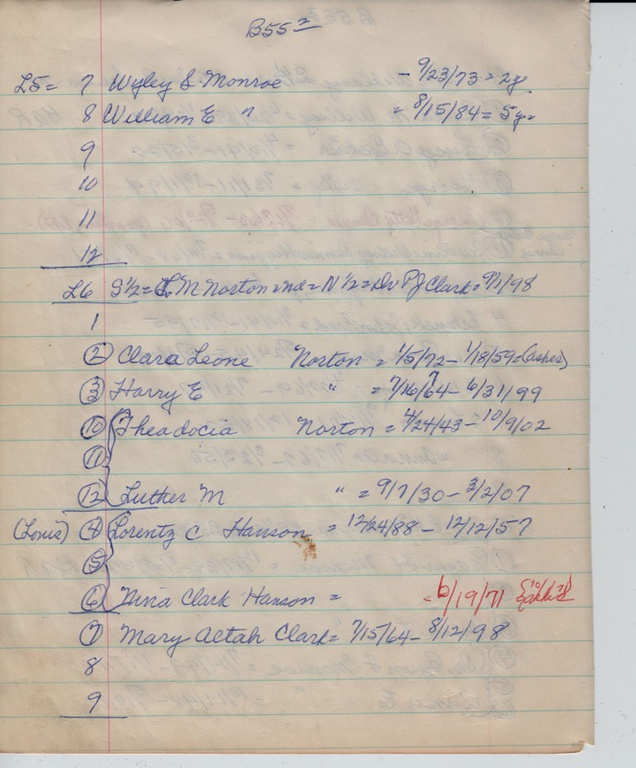 B55²
L5= 7 Wyley S. Monroe - 9/23/73 = 2y.
8 William E " = 8/15/84 = 5y.
9
10
11
12
L6 S½ = L. M Norton 2nd = N ½ = Dr P J Clark = 9/1/98
1
2 Clara Leone Norton = 1/5/72 - 1/18/59 (ashes)
3 Harry E " = 7/16/64 - 6/31/99
10 Theadocia Norton = 4/24/43 - 10/9/02
11
12 Luther M " = 9/7/30 - 3/2/07
(Louis) 4 Lorentz C Hanson = 12/24/88 - 12/12/57
5
6 Nina Clark Hanson = = 6/19/71
7 Mary Altah Clark = 7/15/64 - 8/12/98
8
9